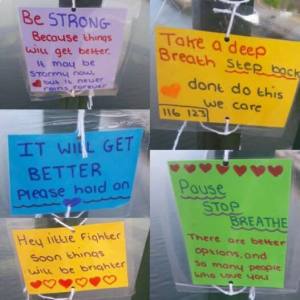 Be STRONG
Because things
will get better.
It may be
stormy now,
but it never
rains forever
Take a deep
Breath step back
dont do this
we care
116 123
IT WILL GET
BETTER
Please hold on
Hey little fighter
Soon things
will be brighter
Pause
STOP
BREATHE
There are better
options, and
so many people
who love you